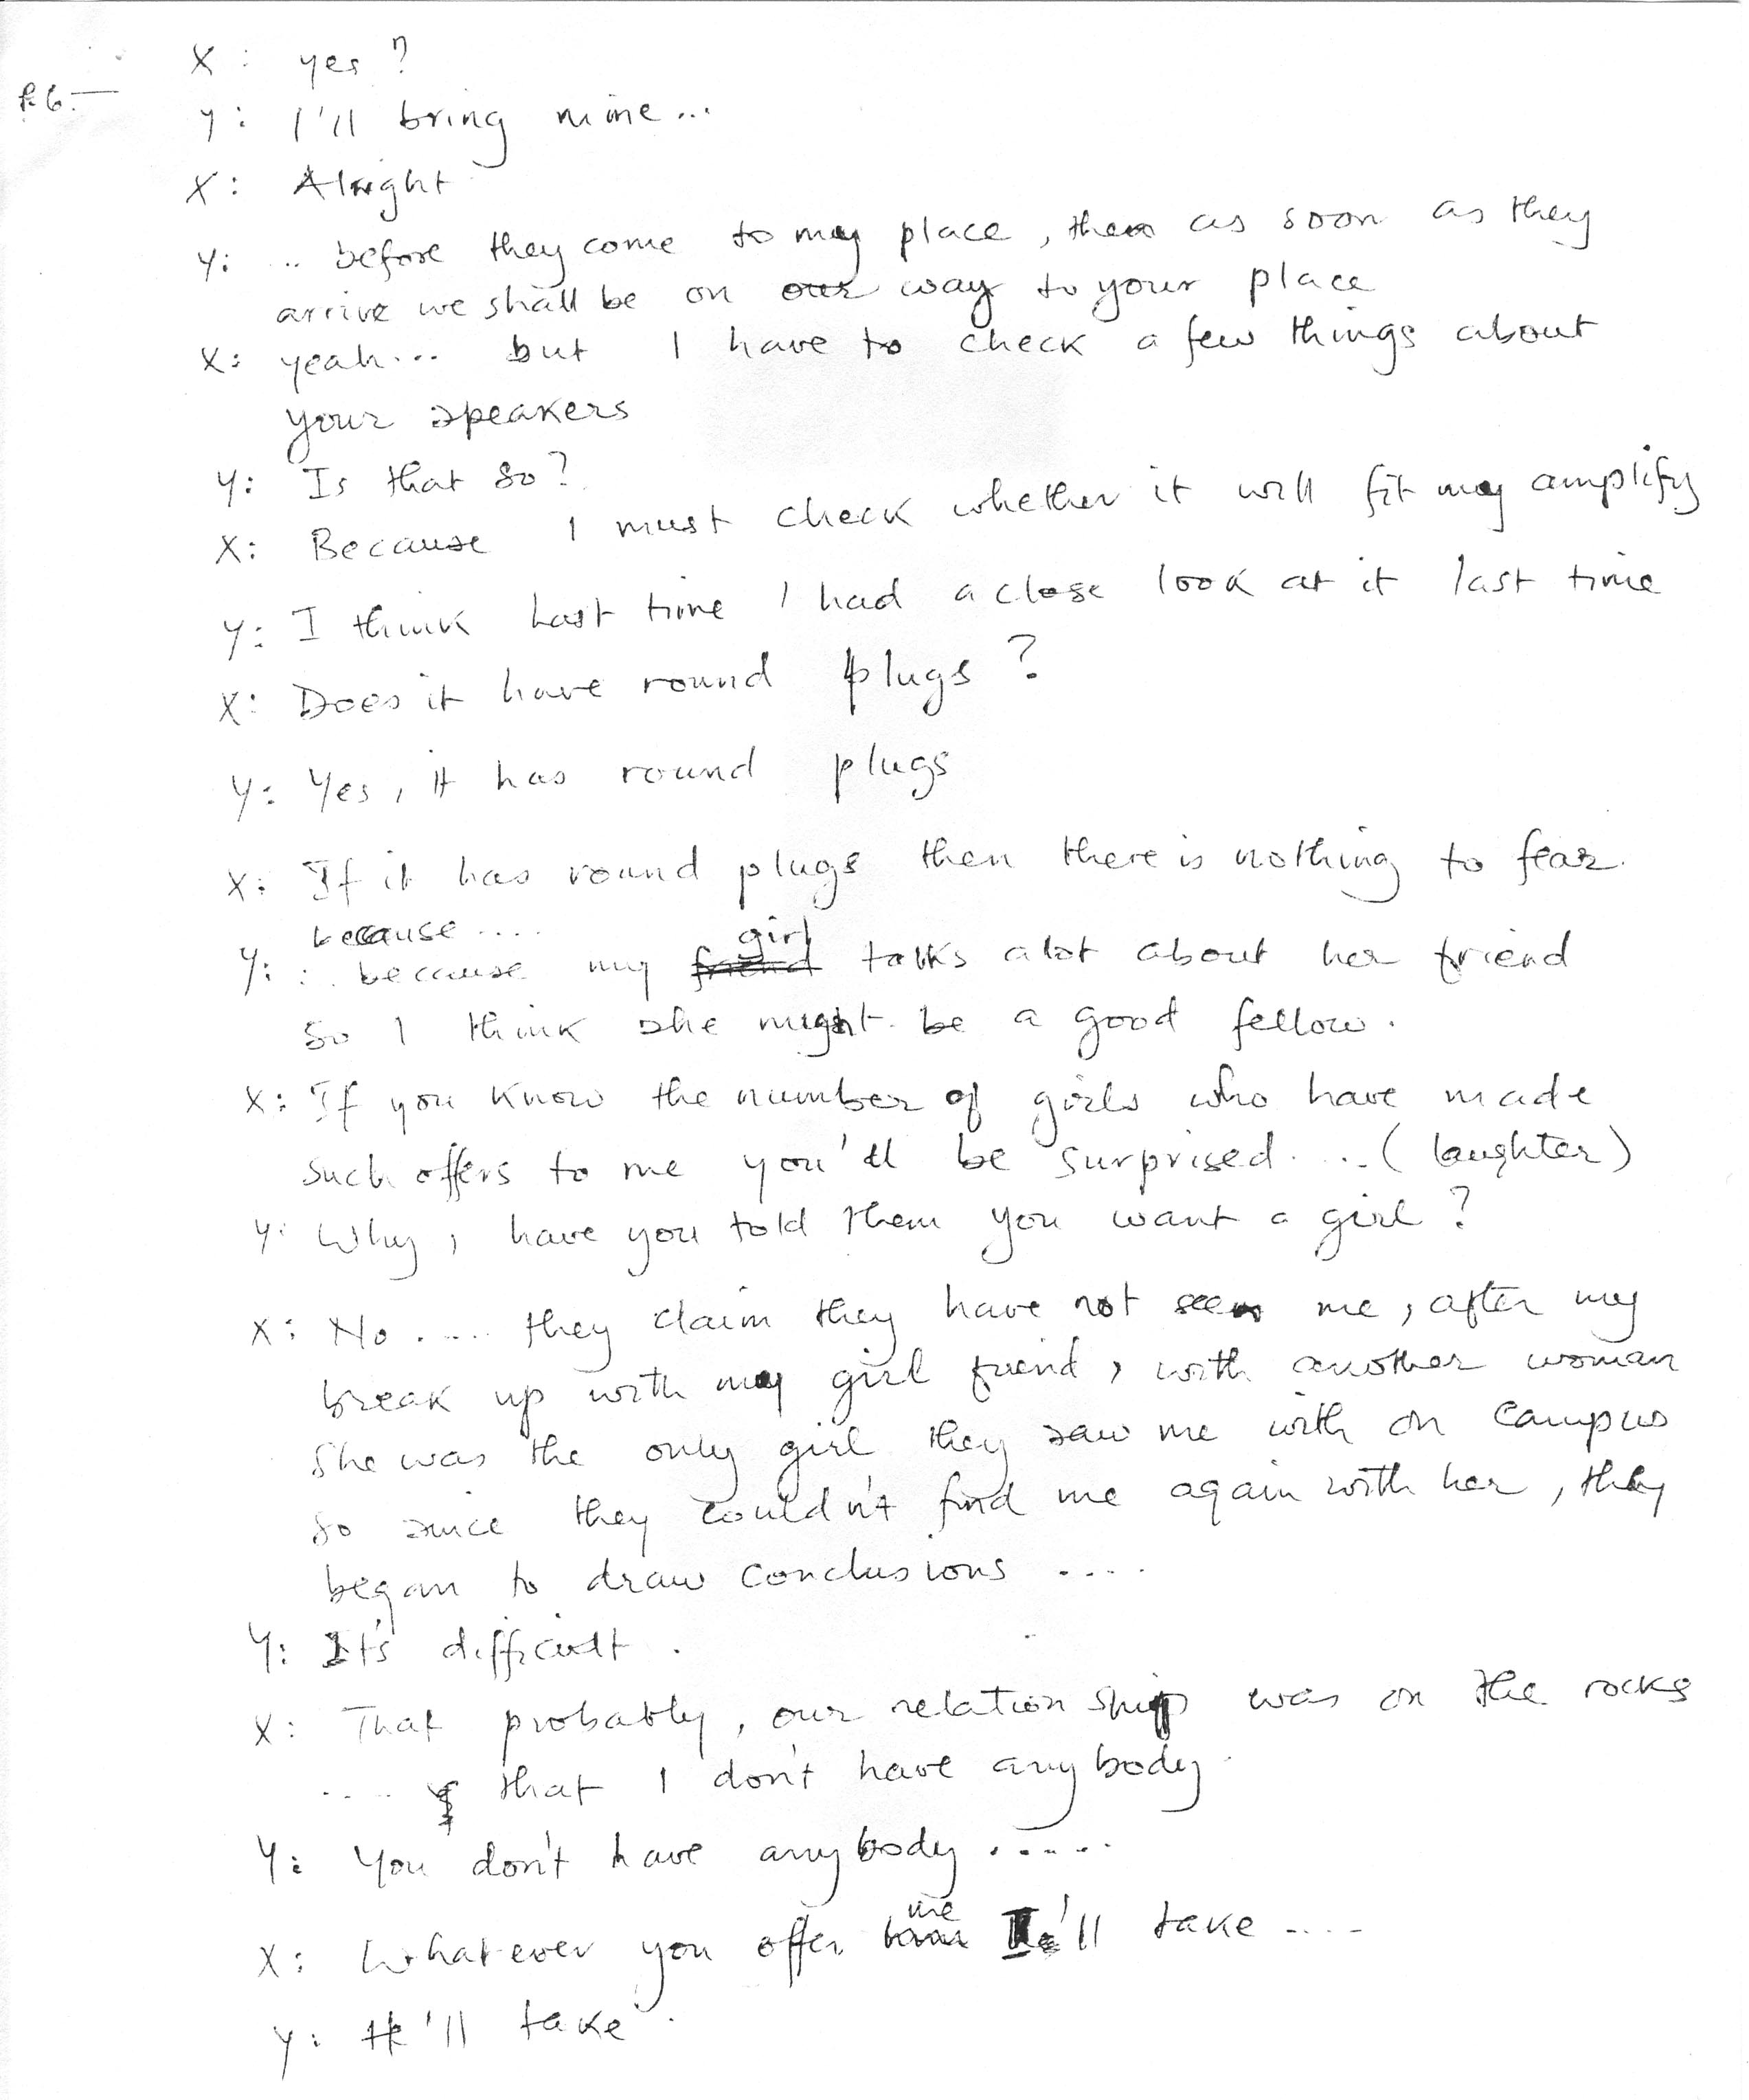 X: yes?
P.6.—
Y: I'll bring mine...
X: Alright
Y: .. before they come to my place, then as soon as they
arrive we shall be on our way to your place
X: yeah... but I have to check a few things about
your speakers
Y: Is that so?
X: Because I must check whether it will fit my amplify
Y: I think last time I had a close look at it last time
X: Does it have round plugs?
Y: Yes, it has round plugs
X: If it has round plugs then there is nothing to fear.
because ....
Y: ... because my girl talks alot about her friend
So I think she might be a good fellow.
X: If you know the number of girls who have made
such offers to me you'll be surprised ... (laughter)
Y: Why, have you told them you want a girl?
X: No .... they claim they have not seen me, after my
break up with my girl friend, with another woman
She was the only girl they saw me with on campus
so since they couldn't find me again with her, they
began to draw conclusions ....
Y: It's difficult.
X: That probably, our relationship was on the rocks
.... that I don't have anybody.
Y: You don't have anybody .....
X: Whatever you offer me I'll take ....
Y: 'll take.